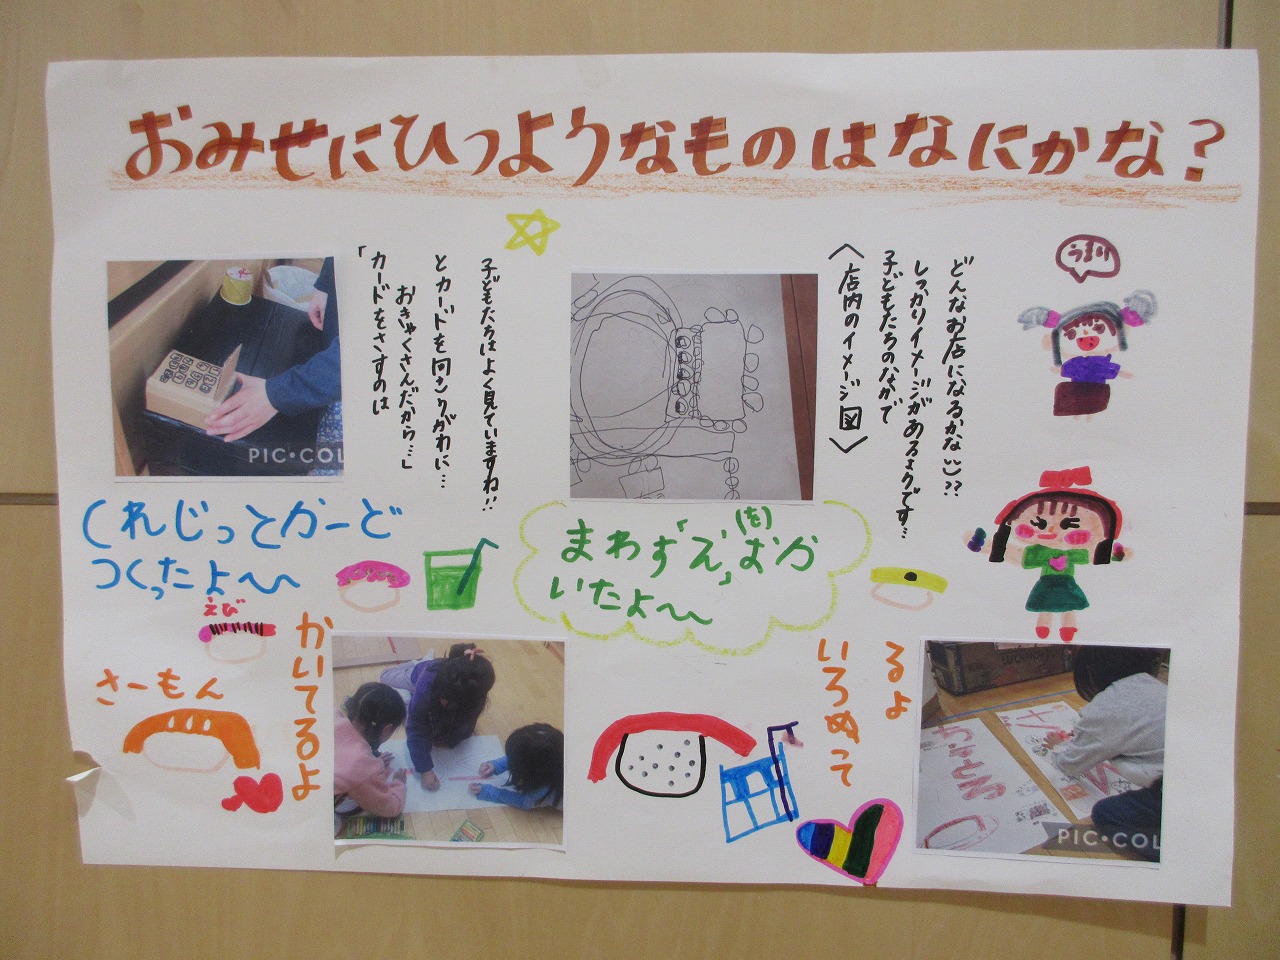 おみせにひつようなものはなにかな？
うまい
どんなお店になるかな??
しっかりイメージがあるようです…
子どもたちのなかで
〈店内のイメージ図〉
子どもたちはよく見ていますね!!
とカードを向こうがわに…
おきゃくさんだから…」
「カードをさすのは
PIC•COL
くれじっとかーど
つくったよ〜
まわず「え」(を)おか
いたよ〜
えび
さーもん
かいてるよ
いろぬって
るよ
PIC•COL